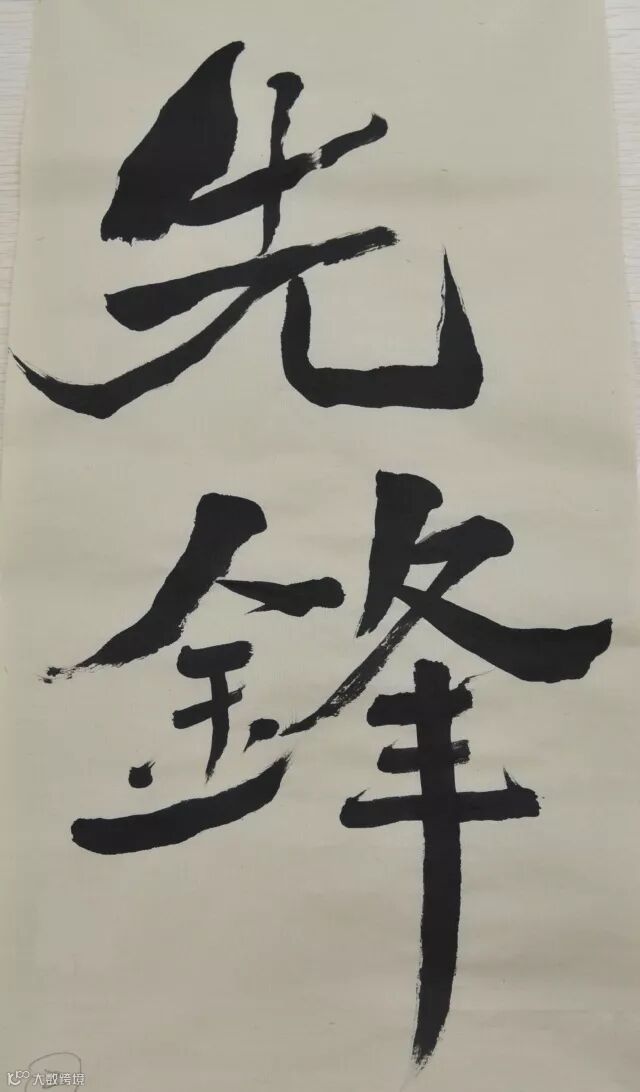 先
鋒
大数跨境